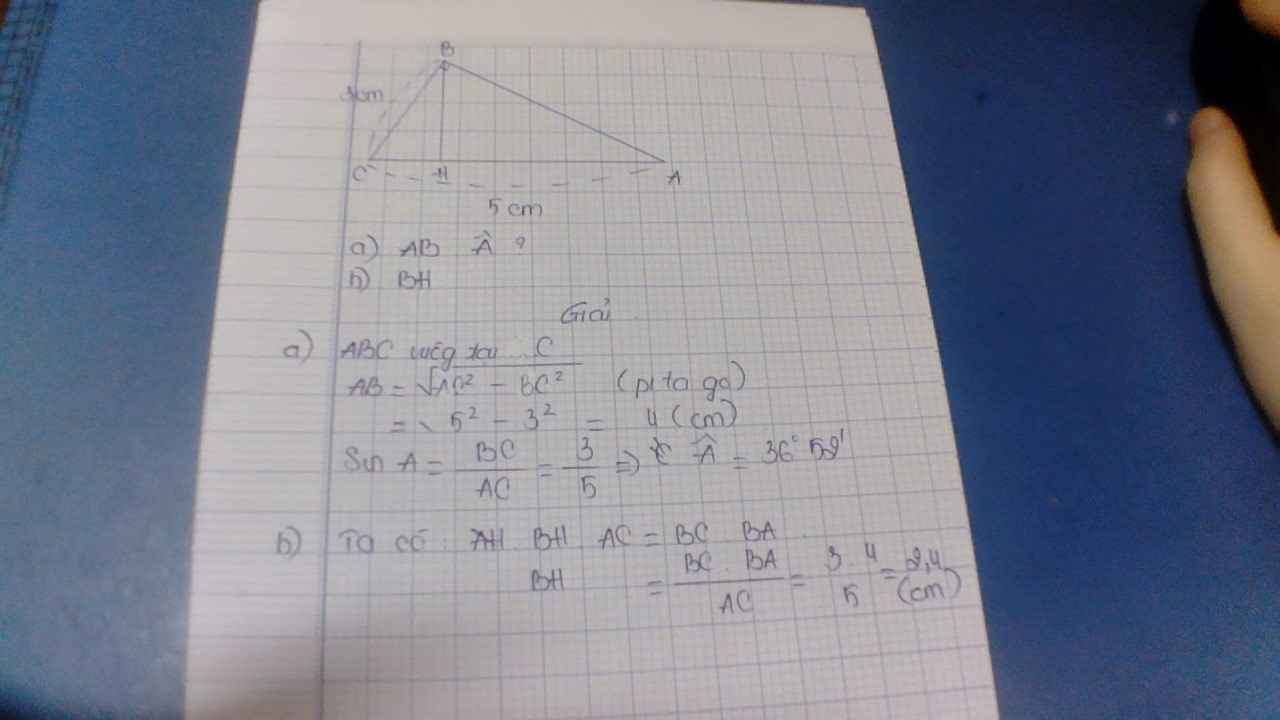 B
3cm
C H A
5 cm
a) AB Â ?
b) BH
Giải
a) ABC vuông tại C
AB = √AC² - BC² (pi ta go)
= √ 5² - 3² = 4 (cm)
Sin A = BC/AC = 3/5 => Â = 36° 52'
b) Ta có: BH AC = BC BA
BH = BC . BA/AC = 3. 4/5 = 2,4 (cm)